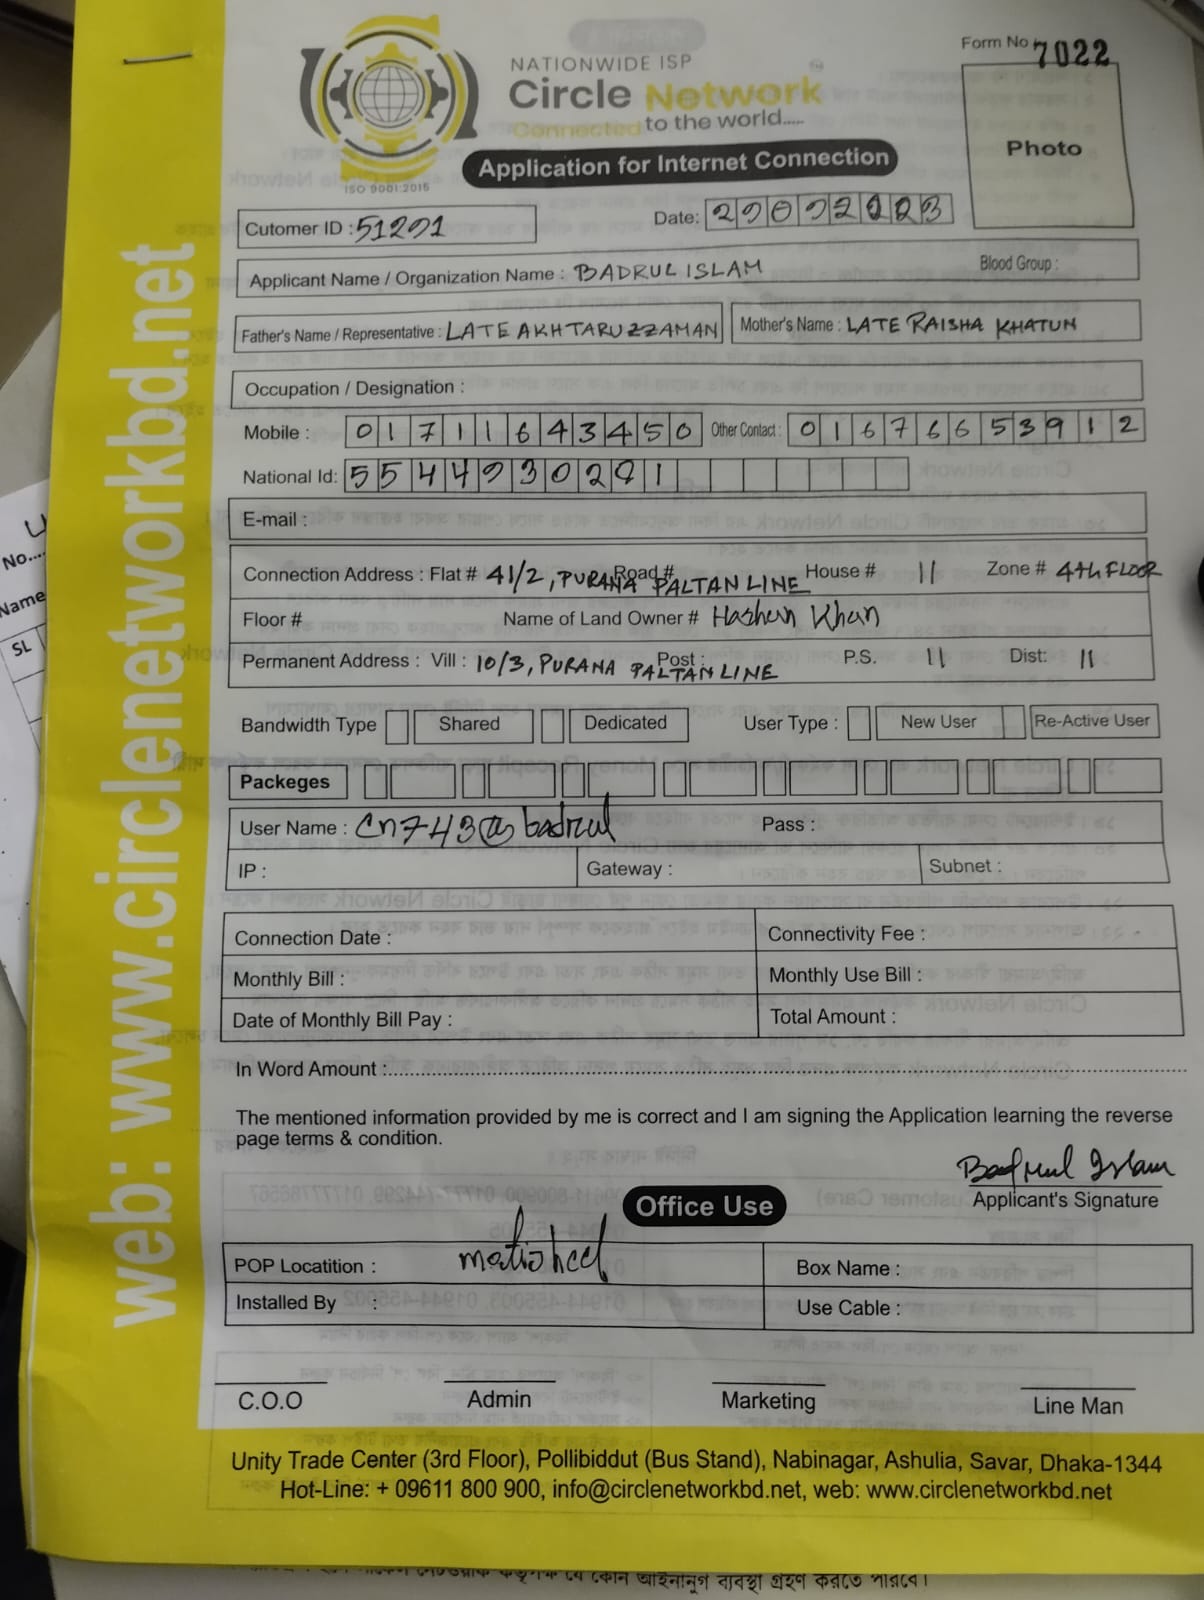 Form No 7022
NATIONWIDE ISP
Circle Network
Connected to the world.....
ISO 9001:2015
Application for Internet Connection
Photo
Cutomer ID : 51291
Date:
Applicant Name / Organization Name : BADRUL ISLAM
Blood Group :
Father's Name / Representative : LATE AKHTARUZZAMAN
Mother's Name : LATE RAISHA KHATUN
Occupation / Designation :
Mobile : 01711643450 Other Contact : 01676653912
National Id:
E-mail :
Connection Address : Flat # 41/2, PURANA PALTAN LINE Road # House # 11 Zone # 4th FLOOR
Floor # Name of Land Owner # Hashem Khan
Permanent Address : Vill : 10/3, PURANA PALTAN LINE Post : P.S. 11 Dist: 11
Bandwidth Type Shared Dedicated User Type : New User Re-Active User
Packeges
User Name : Cn743@badrul Pass :
IP : Gateway : Subnet :
Connection Date : Connectivity Fee :
Monthly Bill : Monthly Use Bill :
Date of Monthly Bill Pay : Total Amount :
In Word Amount :
The mentioned information provided by me is correct and I am signing the Application learning the reverse
page terms & condition.
Badrul Islam
Applicant's Signature
Office Use
POP Locatition : motijheel Box Name :
Installed By : Use Cable :
C.O.O Admin Marketing Line Man
Unity Trade Center (3rd Floor), Pollibiddut (Bus Stand), Nabinagar, Ashulia, Savar, Dhaka-1344
Hot-Line: + 09611 800 900, info@circlenetworkbd.net, web: www.circlenetworkbd.net
web: www.circlenetworkbd.net
No....
Name
SL
যে কোন আইনানুগ ব্যবস্থা গ্রহণ করতে পারবে।